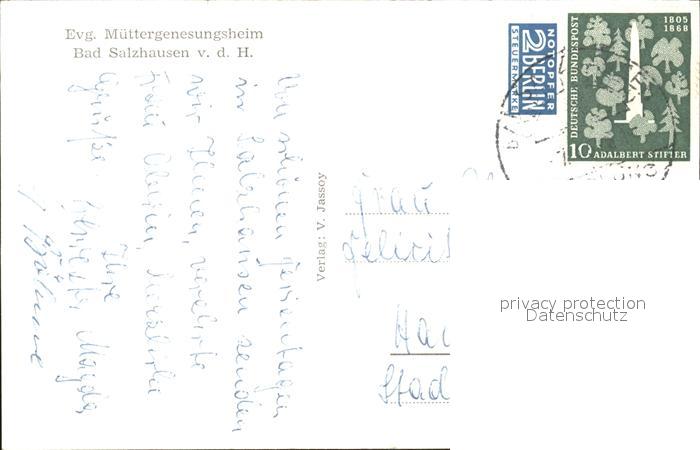 Evg. Müttergenesungsheim
Bad Salzhausen v. d. H.
Von schönen Ferientagen
in Salzhausen senden
wir Ihnen, verehrte
Frau herzliche
Grüße Ihre
Magda
Böhme
Verlag: V. Jassoy
NOTOPFER
2 BERLIN
STEUERMARKE
DEUTSCHE BUNDESPOST
1805
1868
10 ADALBERT STIFTER
Frau
Felici
Ha
Stad
privacy protection
Datenschutz